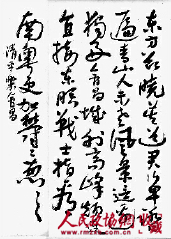 东方欲晓莫道君行早踏
遍青山人未老风景这边
独好会昌城外高峰颠连
直接东溟战士指看
南粤更加郁郁葱葱
清平乐会昌
人民政协网
www.rmzxb.com.cn
收藏